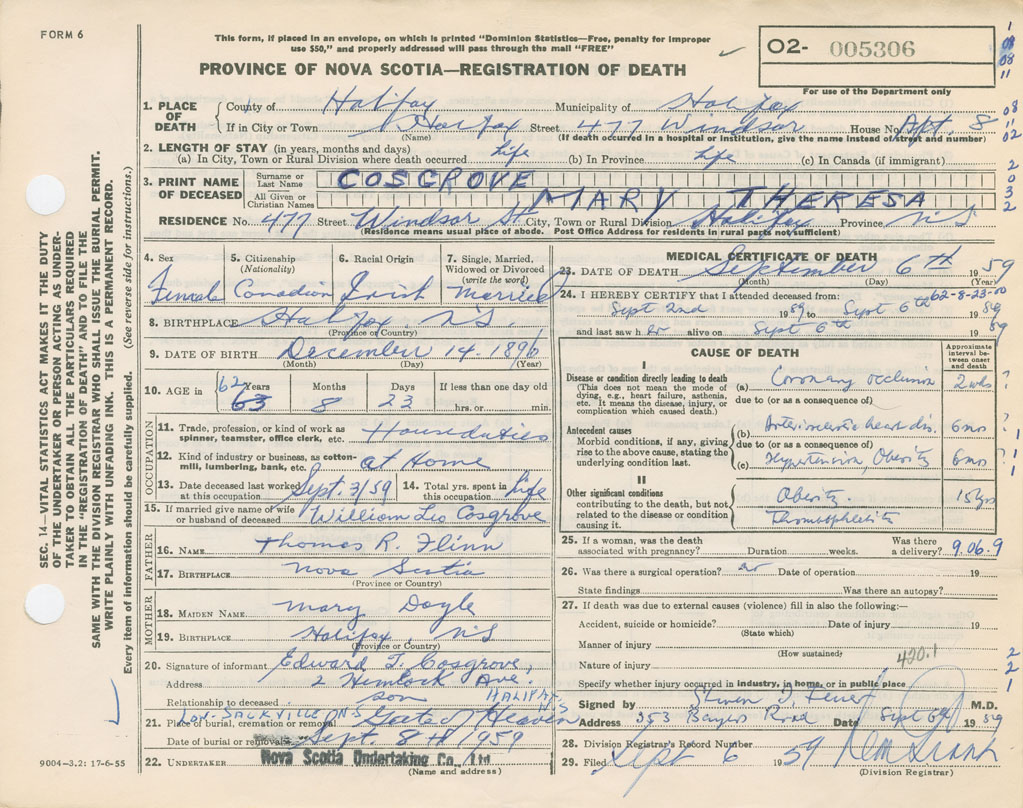 FORM 6
This form, if placed in an envelope, on which is printed "Dominion Statistics—Free, penalty for improper
use $50," and properly addressed will pass through the mail "FREE"
O2- 005306
For use of the Department only
PROVINCE OF NOVA SCOTIA—REGISTRATION OF DEATH
1. PLACE OF DEATH
County of Halifax Municipality of Halifax
If in City or Town Halifax Street 477 Windsor House No. Apt. 8
(Name) (If death occurred in a hospital or institution, give the name instead of street and number)
2. LENGTH OF STAY (in years, months and days)
(a) In City, Town or Rural Division where death occurred Life (b) In Province Life (c) In Canada (if immigrant)
3. PRINT NAME OF DECEASED
Surname or Last Name COSGROVE
All Given or Christian Names MARY THERESA
RESIDENCE No. 477 Street Windsor St. City, Town or Rural Division Halifax Province N S
(Residence means usual place of abode. Post Office Address for residents in rural parts not sufficient)
4. Sex Female
5. Citizenship (Nationality) Canadian
6. Racial Origin Irish
7. Single, Married, Widowed or Divorced (write the word) Married
8. BIRTHPLACE Halifax N.S.
(Province or Country)
9. DATE OF BIRTH December 14. 1896
(Month) (Day) (Year)
10. AGE in 62 63 Years 8 Months 23 Days If less than one day old hrs. or min.
OCCUPATION
11. Trade, profession, or kind of work as spinner, teamster, office clerk, etc. Houseduties
12. Kind of industry or business, as cotton-mill, lumbering, bank, etc. at Home
13. Date deceased last worked at this occupation Sept. 3/59
14. Total yrs. spent in this occupation Life
15. If married give name of wife or husband of deceased William Leo Cosgrove
FATHER
16. NAME Thomas R. Flinn
17. BIRTHPLACE Nova Scotia
(Province or Country)
MOTHER
18. MAIDEN NAME Mary Doyle
19. BIRTHPLACE Halifax, N S
(Province or Country)
20. Signature of informant Edward J. Cosgrove,
Address 2 Hemlock Ave. HALIFAX
Relationship to deceased son
21. Place of burial, cremation or removal LWR. SACKVILLE N.S Gate of Heaven
Date of burial or removal Sept. 8th/1959
22. UNDERTAKER Nova Scotia Undertaking Co., Ltd
(Name and address)
9004-3.2: 17-6-55
MEDICAL CERTIFICATE OF DEATH
23. DATE OF DEATH September 6th 1959
(Month) (Day) (Year)
62-8-23-00
24. I HEREBY CERTIFY that I attended deceased from:
Sept 2nd 1959 to Sept 6th 1959
and last saw her alive on Sept 6th 1959
CAUSE OF DEATH
Approximate interval between onset and death
I
Disease or condition directly leading to death
(This does not mean the mode of dying, e.g., heart failure, asthenia, etc. It means the disease, injury, or complication which caused death.)
(a) Coronary occlusion 2 wks ?
due to (or as a consequence of)
Antecedent causes
Morbid conditions, if any, giving rise to the above cause, stating the underlying condition last.
(b) Arteriosclerotic heart dis. 6 mos ?
due to (or as a consequence of)
(c) Hypertension, Obesity 6 mos ?
II
Other significant conditions
contributing to the death, but not related to the disease or condition causing it.
Obesity. 15 yrs
Thrombophlebitis
25. If a woman, was the death associated with pregnancy? Duration weeks. Was there a delivery? 9.06.9
26. Was there a surgical operation? no Date of operation 19
State findings Was there an autopsy?
27. If death was due to external causes (violence) fill in also the following:—
Accident, suicide or homicide? Date of injury 19
(State which)
Manner of injury
(How sustained)
420.1
Nature of injury
Specify whether injury occurred in industry, in home, or in public place
Signed by M.D.
Address 253 Bayers Road Date Sept 6th 1959
28. Division Registrar's Record Number
29. Filed Sept 6 1959
(Division Registrar)
SEC. 14—VITAL STATISTICS ACT MAKES IT THE DUTY
OF THE UNDERTAKER OR PERSON ACTING AS UNDER-
TAKER TO OBTAIN ALL THE PARTICULARS REQUIRED
IN THE "REGISTRATION OF DEATH" AND TO FILE THE
SAME WITH THE DIVISION REGISTRAR WHO SHALL ISSUE THE BURIAL PERMIT.
WRITE PLAINLY WITH UNFADING INK. THIS IS A PERMANENT RECORD.
Every item of information should be carefully supplied. (See reverse side for instructions.)